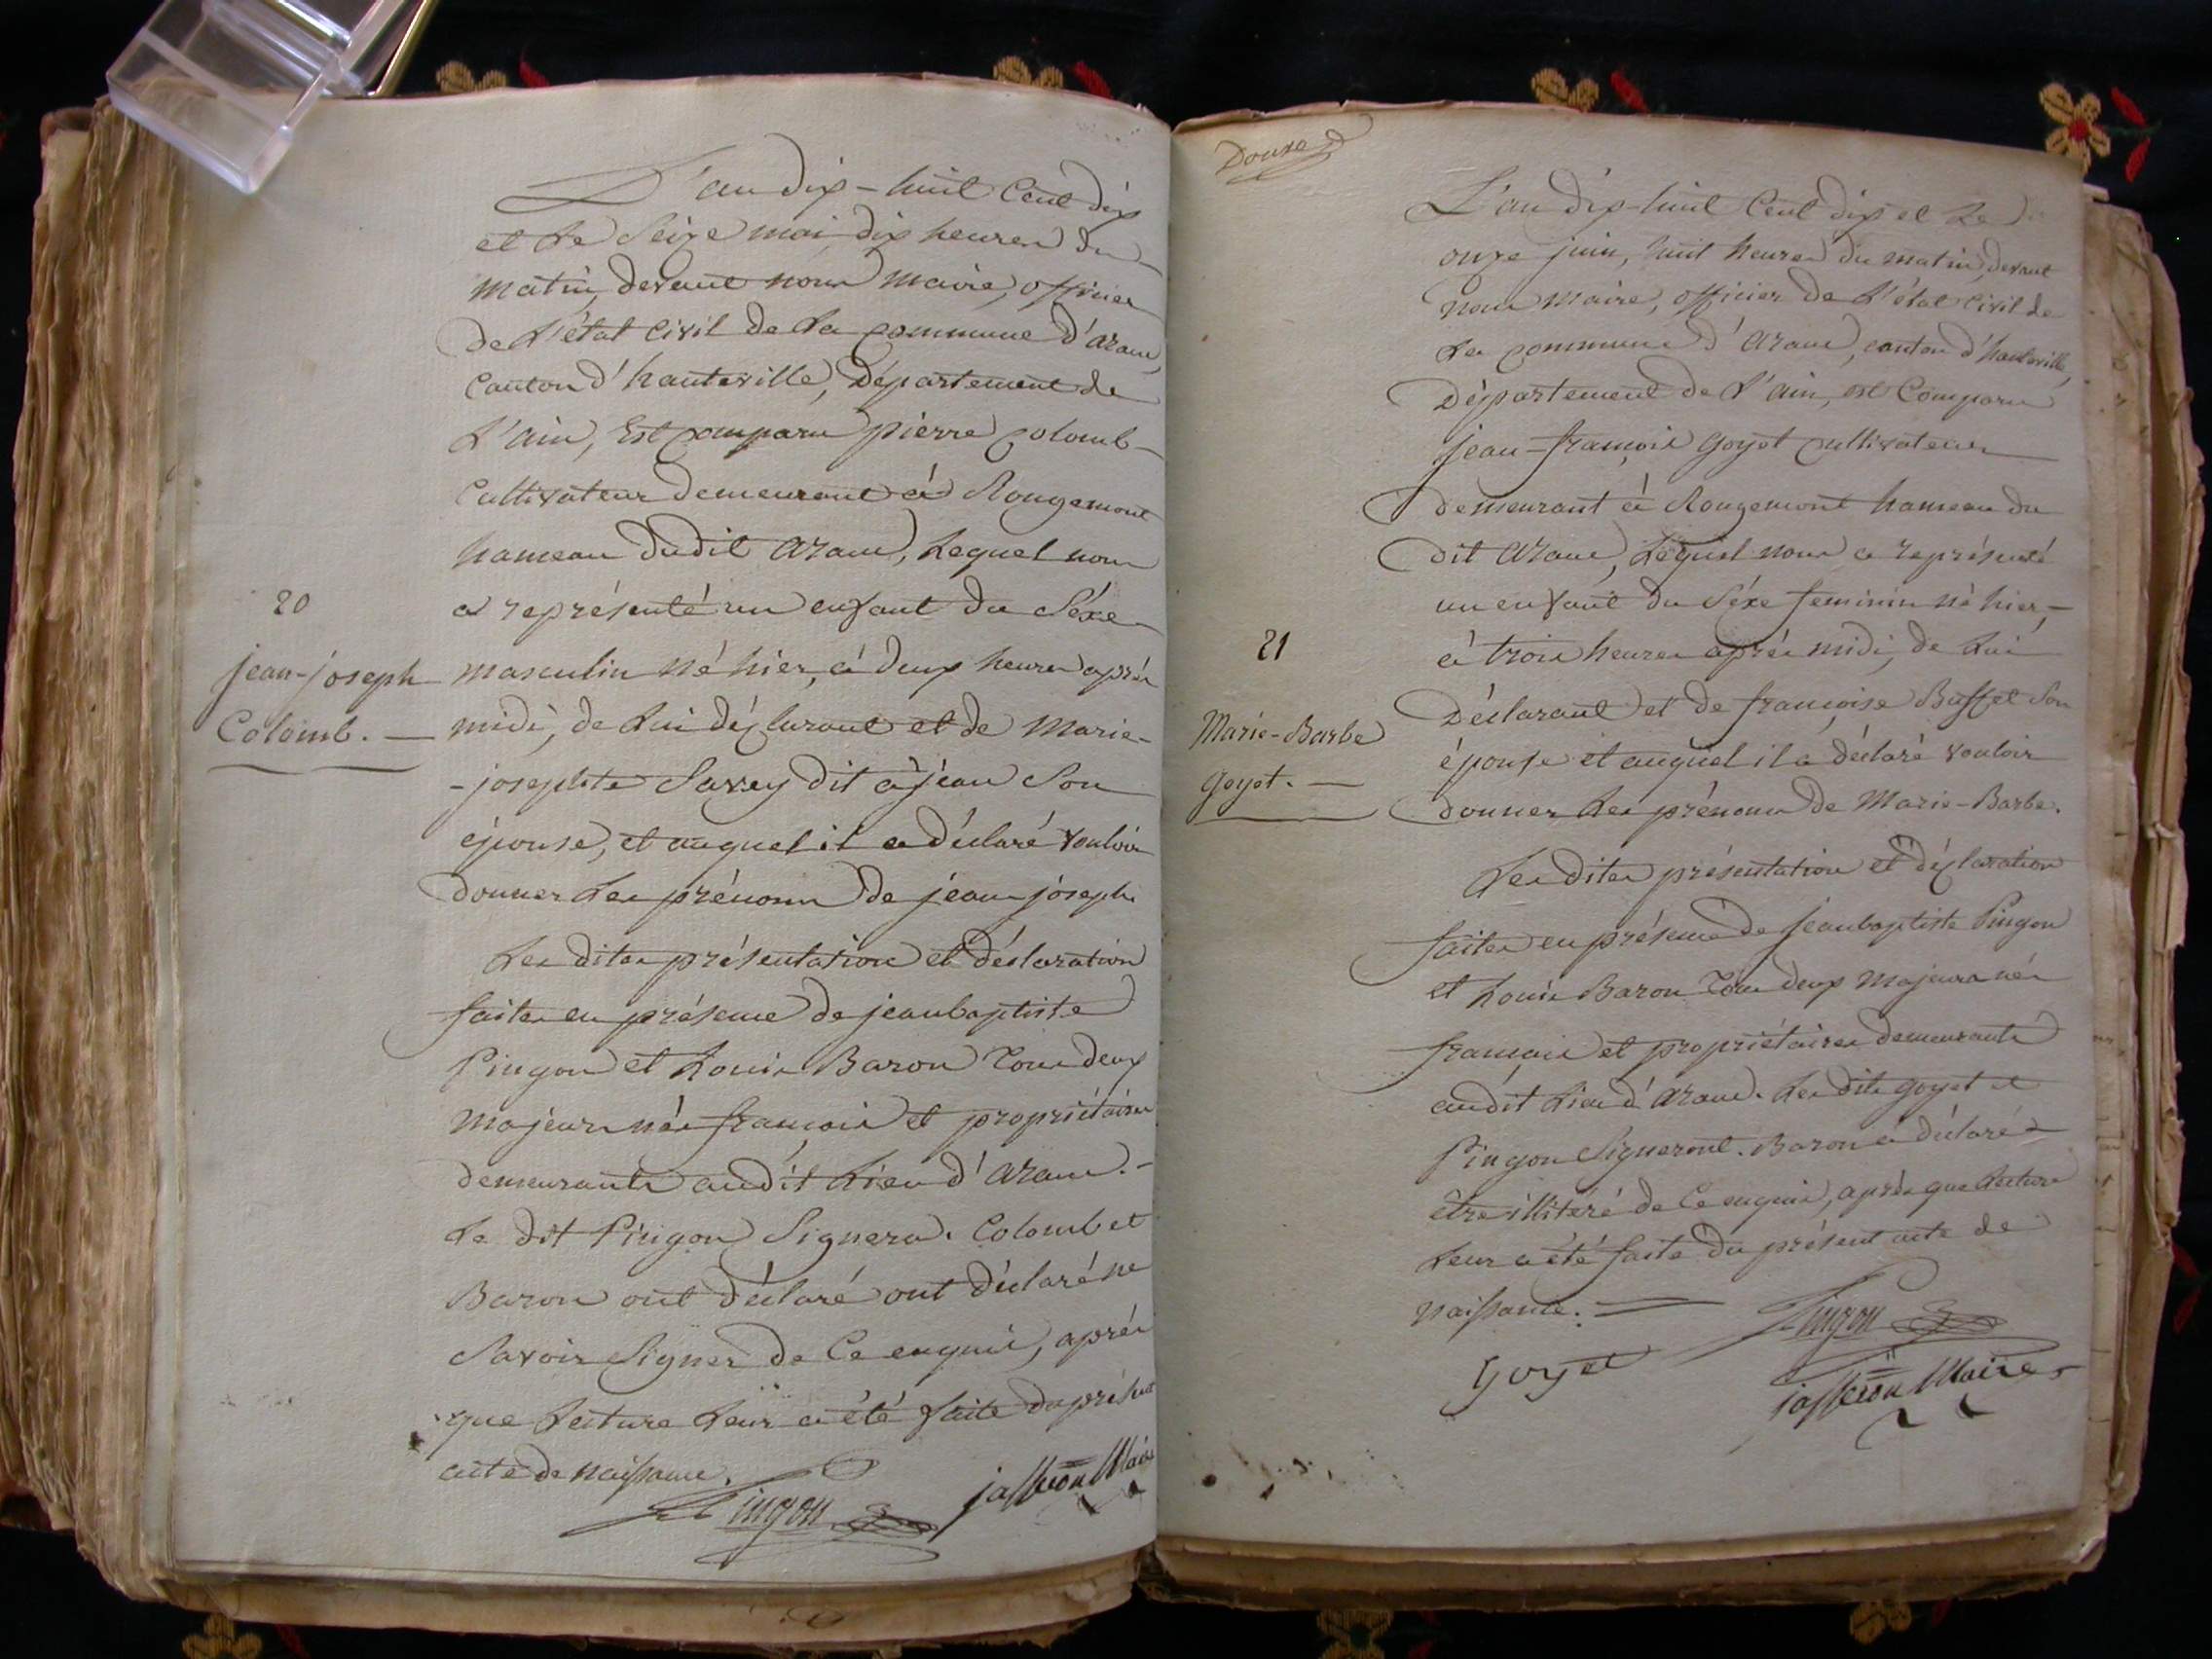 L'an dix-huit Cent dix
et le Seize mai, dix heures du
matin, devant nous maire, officier
de l'état civil de la commune d'aranc,
canton d'hauteville, Département de
l'ain, Est comparu pierre colomb
Cultivateur demeurant à Rougemont
hameau dudit aranc, lequel nous
20
a représenté un enfant du séxe
jean-joseph
Colomb. —
masculin né hier, à deux heures après
midi, de lui déclarant et de Marie-
-josephte Savey dit à jean Son
épouse, et auquel il a déclaré vouloir
donner les prénoms de jean joseph.
Les dites présentation et déclaration
faites en présence de jeanbaptiste
Pingon et Louis Baron Tous deux
majeurs nés français et propriétaires
demeurants audit lieu d'aranc. -
Le dit Pingon Signera. Colomb et
Baron ont déclaré ont déclaré ne
Savoir Signer de Ce enquis, après
que lecture leur a été faite du présent
acte de naissance.
Pingon
jasseron Maire
Douze
L'an dix-huit Cent dix et le
onze juin, huit heures du matin, devant
nous maire, officier de l'état civil de
la commune d'aranc, canton d'hauteville,
Département de l'ain, est Comparu
jean-françois goyet cultivateur
demeurant à Rougemont hameau du
dit aranc, lequel nous a représenté
un enfant du Séxe feminin né hier, —
21
à trois heures après midi, de lui
Marie-Barbe
goyet. —
Déclarant et de françoise Buffet Son
épouse et auquel il a déclaré vouloir
donner les prénoms de Marie-Barbe.
Les dites présentation et déclaration
faites en présence de jeanbaptiste Pingon
et Louis Baron Tous deux majeurs nés
français et propriétaires demeurants
audit lieu d'aranc. Les dits goyet et
Pingon Signeront. Baron a déclaré
être illitéré de Ce enquis, après que lecture
leur a été faite du présent acte de
naissance.
Pingon
goyet
jasseron Maire